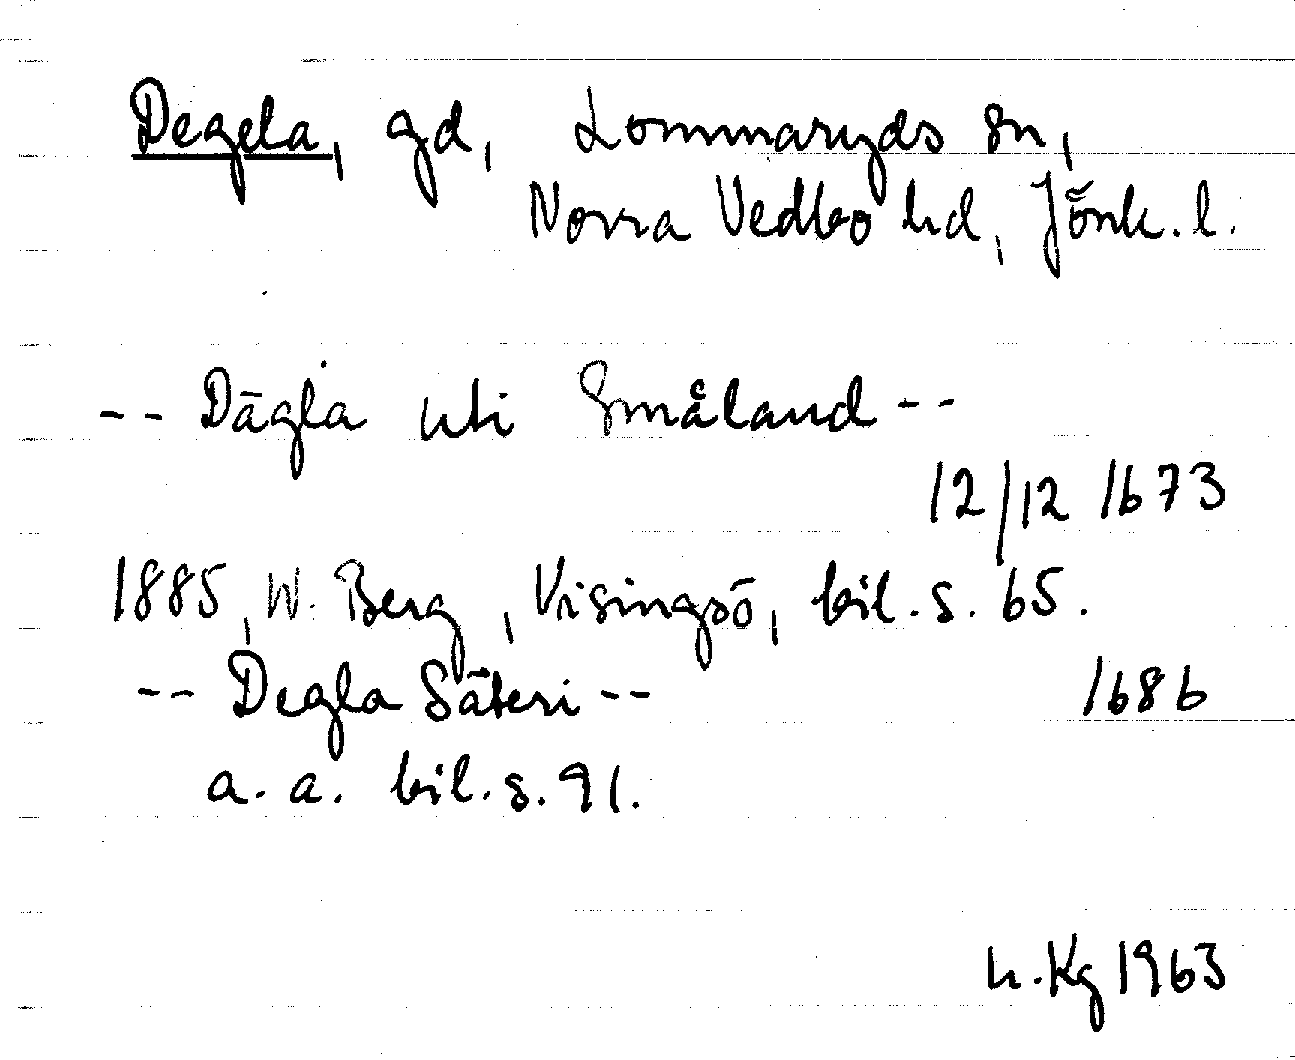 Degela, gd, Lommaryds sn,
Norra Vedbo hd, Jönk. l.
-- Dägla uti Småland --
12/12 1673
1885, W. Berg, Visingsö, bil. s. 65.
-- Degla Säteri -- 1686
a. a. bil. s. 91.
h. Kg 1963